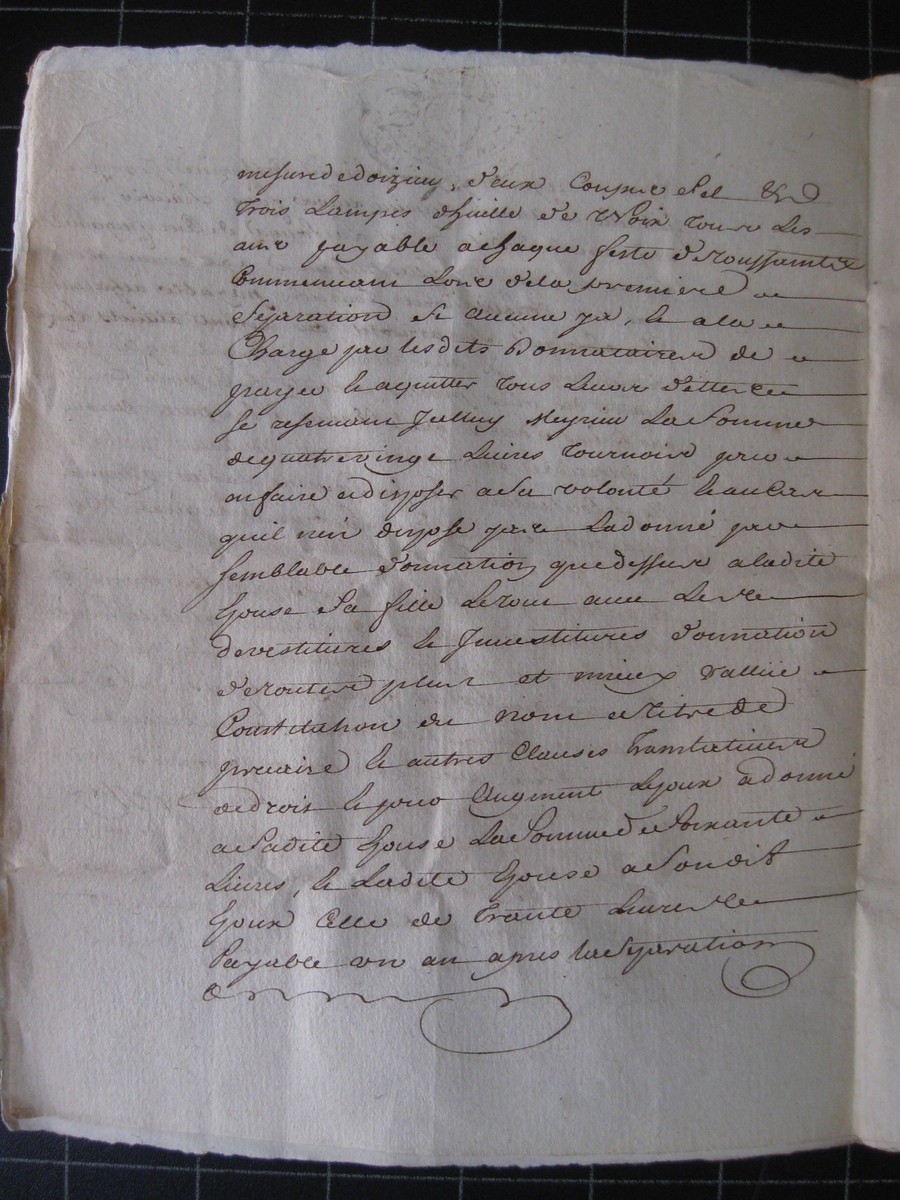 mesure de doizieu, deux Coupes sel &
trois Lampes dhuille de Noix tous Les
ans payable a chaque feste de toussaintz
Commencant Lors dela premiere
Separation si aucune ya, le ala
Charge par lesdits Donnataires de
payer le aquitter tous Leurs dettes
se reservant Meyrieu La Somme
de quatre vingt Livres tournois pour
en faire et disposer a Sa volonté le au Cas
quil nen dispose pas La donné par
semblable donnation que dessus a ladite
Epouse Sa fille Le tout avec Les
devestitures le Jnvestitures donnation
de toutes plus et mieux vallüe
Constitution du nom et titre de
precaire le autres Clauses translatives
de droit le pour augment Lepoux a donné
a Sadite Epouse La Somme de Soixante
Livres, le Ladite Epouse a Sondit
Epoux Celle de trante Livres
Payable un an apres la Separation